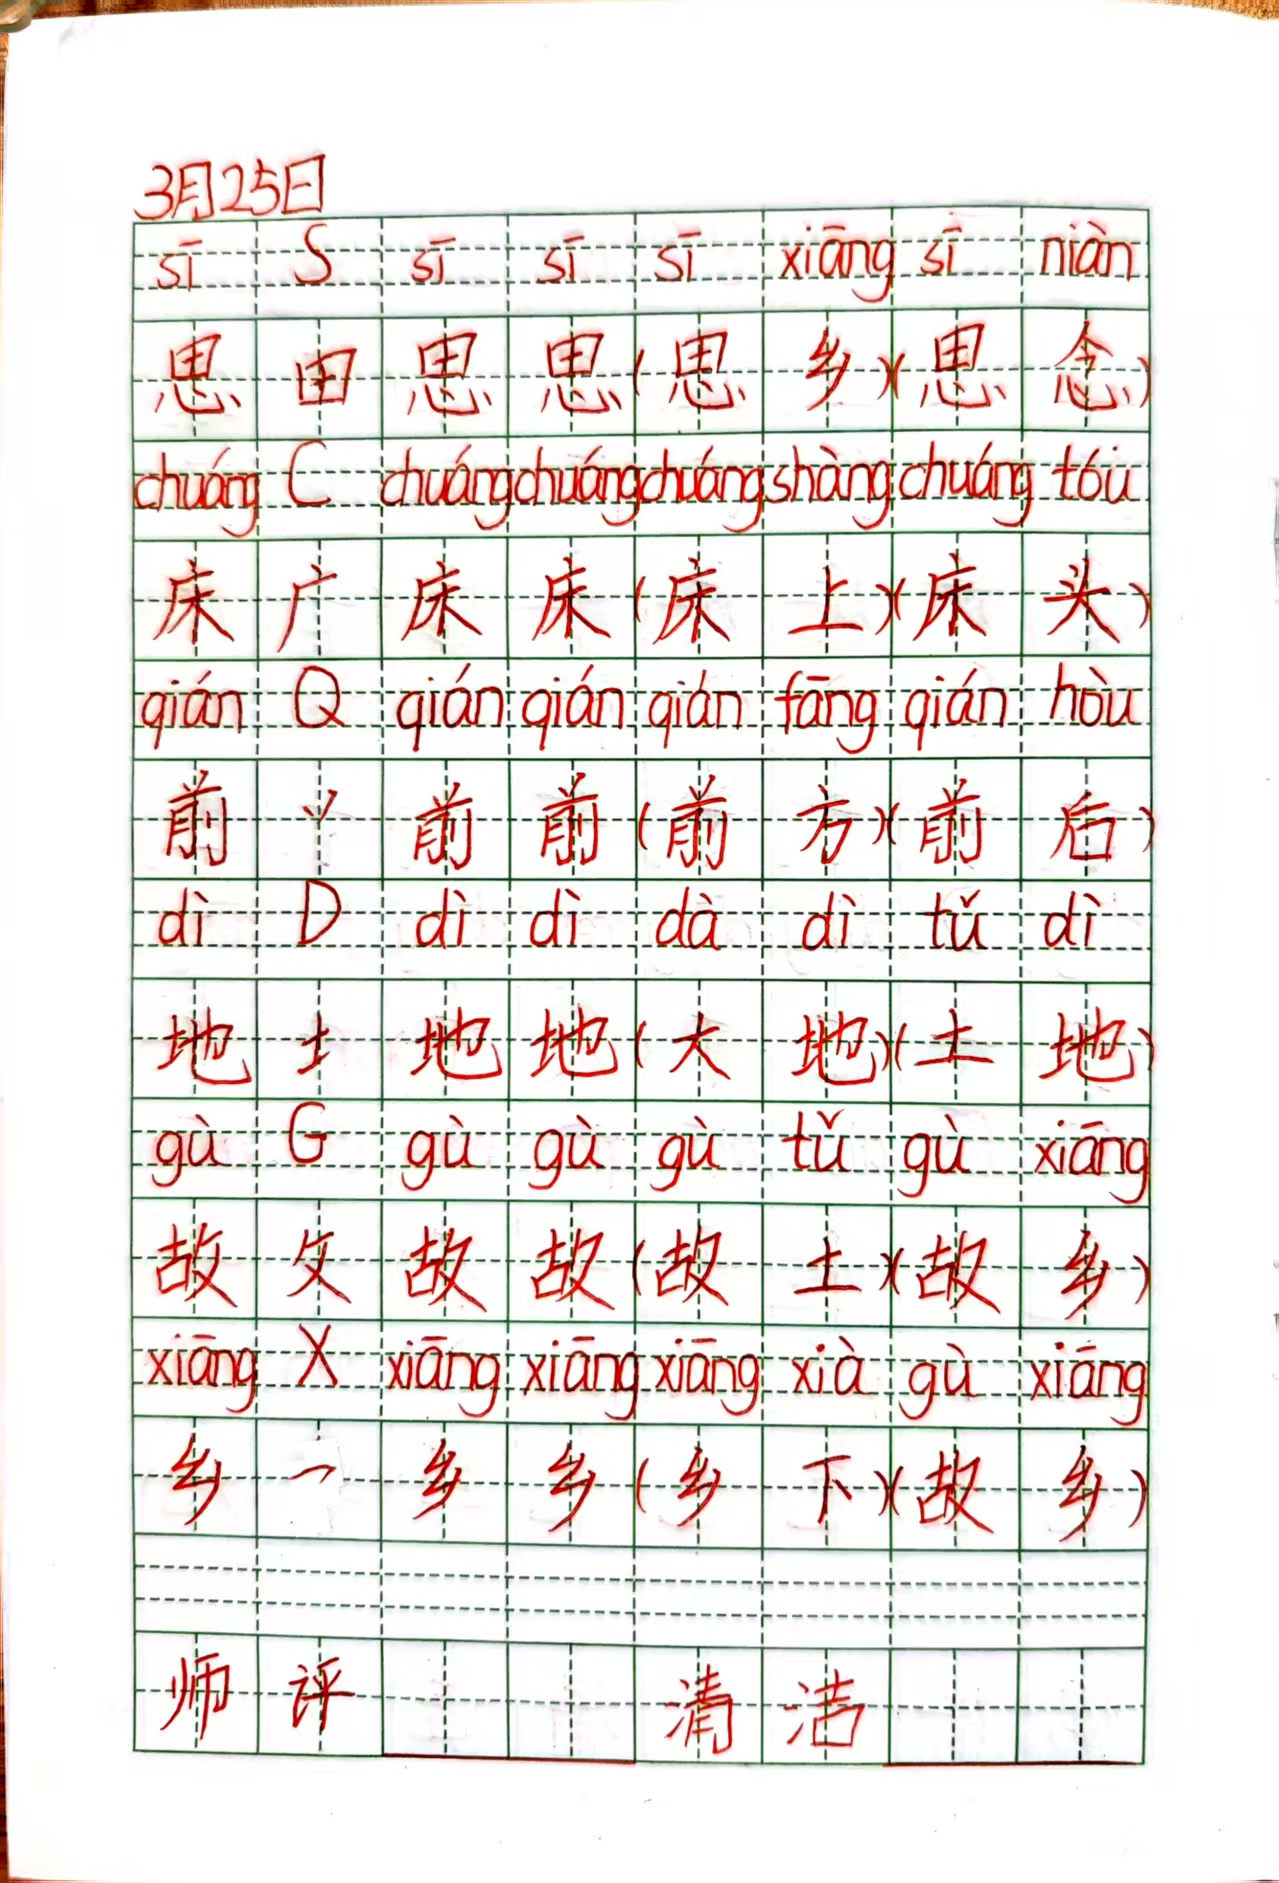 3月25日
sī S sī sī sī xiāng sī niàn
思 田 思 思 (思 乡)(思 念)
chuáng C chuáng chuáng chuáng shàng chuáng tóu
床 广 床 床 (床 上)(床 头)
qián Q qián qián qián fāng qián hòu
前 丷 前 前 (前 方)(前 后)
dì D dì dì dà dì tǔ dì
地 土 地 地 (大 地)(土 地)
gù G gù gù gù tǔ gù xiāng
故 攵 故 故 (故 土)(故 乡)
xiāng X xiāng xiāng xiāng xià gù xiāng
乡 ㇇ 乡 乡 (乡 下)(故 乡)
师 评 清 洁